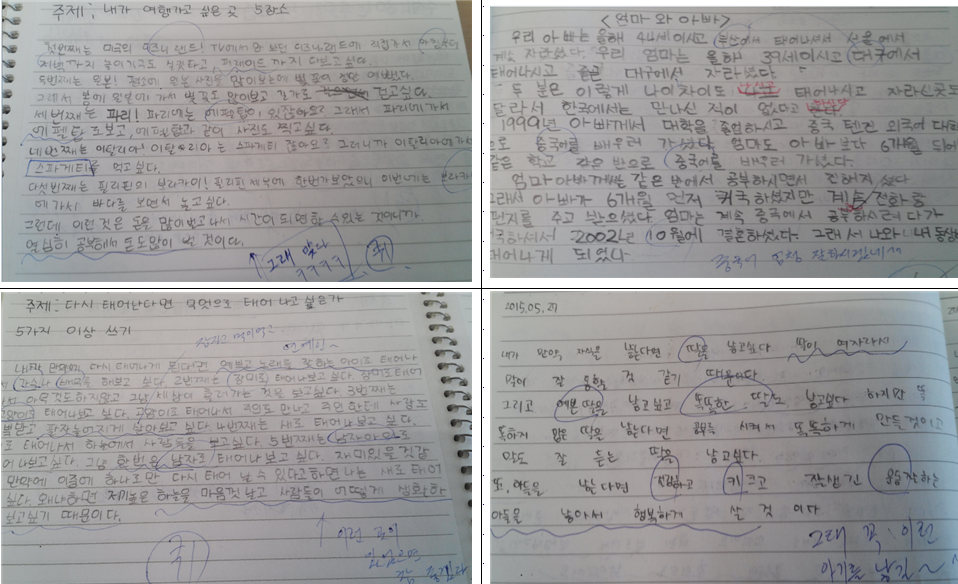 주제: 내가 여행가고 싶은 곳 5장소
첫번째는 미국의 디즈니랜드! TV에서만 보던 디즈니랜드에 직접가서
까지 놀이기구도 실컷타고, 퍼레이드까지 다보고싶다.
두번째는 일본! 평소에 일본 사진을 많이보는데 벚꽃이 정말 예뻤다.
그래서 봄에 일본에 가서 벚꽃도 많이보고 길거도 걷고싶다.
세번째는 파리! 파리에는 에펠탑이 있잖아요? 그래서 파리에가서
에펠탑도보고, 에펠탑과 같이 사진도 찍고싶다.
네번째는 이탈리아! 이탈리아는 스파게티 잖아요? 그러니까 이탈리아에가서
스파게티를 먹고싶다.
다섯번째는 필리핀의 보라카이! 필리핀 세부에 한번가보았으니 이번에는 보라카이
에가서 바다를 보면서 놀고싶다.
그런데 이런것은 돈을 많이벌고나서 시간이되면 할 수있는 것이니까
열심히 공부해서 돈도많이 벌 것이다.
그래 맞다
ㅋㅋㅋㅋ
<엄마와 아빠>
우리 아빠는 올해 44세이시고 부산에서 태어나셔서 서울에서
계속 자랐다. 우리 엄마는 올해 39세이시고 대구에서
태어나시고 대구에서 자라셨다.
두 분은 이렇게 나이차이도 태어나시고 자라신곳도
달라서 한국에서는 만나신 적이 없으시고
1999년 아빠께서 대학을 졸업하시고 중국 텐진 외국어 대학
으로 중국어를 배우러 가셨다. 엄마도 아빠보다 6개월 뒤에
같은 학교 같은 반으로 중국어를 배우러 가셨다.
엄마아빠께서는 같은 반에서 공부하시면서 친해지셨다
그래서 아빠가 6개월 먼저 귀국하셨지만 계속 전화랑
편지를 주고 받으셨다. 엄마는 계속 중국에서 공부하시다가
귀국하셔서 2002년 10월에 결혼하셨다. 그래서 나와 내 동생이
태어나게 되었다
중국어 엄청 잘하시겠네ㅋㅋ
주제: 다시 태어난다면 무엇으로 태어나고 싶은가
5가지 이상 쓰기
내가 만약에 다시 태어나게 된다면 예쁘고 노래도 잘하는 아이로 태어나
해보고 싶다. 2번째는 태어나보고 싶다.
서 아무것도하지않고 그냥 세상이 흘러가는 것을 보고싶다. 3번째는
고양이로 태어나고 싶다. 고양이로 태어나서 주인도 만나고 주인한테 사랑도
살아보고 싶다. 4번째는 새로 태어나보고 싶다.
로 태어나서 하늘에서 사람들을 보고싶다. 5번째는 남자아이로
어나보고싶다. 그냥 한번은 남자로 태어나 보고 싶다. 재미있을것같
만약에 이중에 하나로만 다시 태어날 수 있다고하면 나는 새로 태어
싶다. 왜냐하면 저 높은 하늘을 마음껏 날고 사람들이 어떻게 생활하
보고싶기 때문이다.
이런 꿈이
있었으면
2015.05.27
내가 만약 자식을 낳는다면 딸을 낳고싶다 딸이 여자라서
말이 잘 통할 것 같기 때문이다
그리고 예쁜 딸을 낳고싶고 똑똑한 딸도 낳고싶다 하지만 똑
똑하지 않은 딸을 낳는다면 공부를 시켜서 똑똑하게 만들것이고
말도 잘 듣는 딸을 낳고싶다.
또, 아들을 낳는다면 착하고 키크고 잘생긴 운동잘하는
아들을 낳아서 행복하게 살 것 이다
그래 꼭 이런
아기를 낳길~